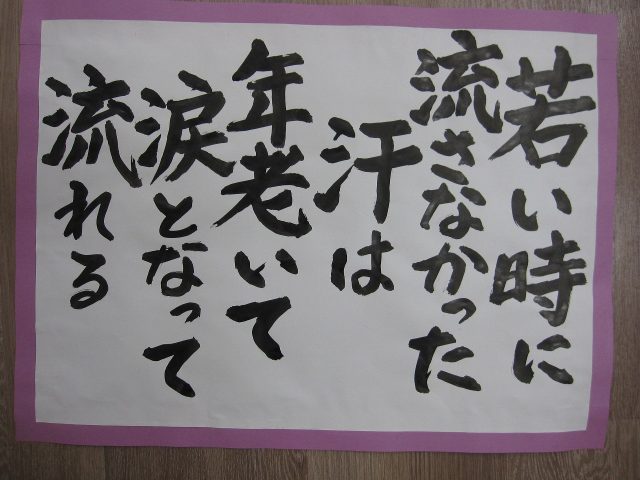 若い時に
流さなかった
汗は
年老いて
涙となって
流れる